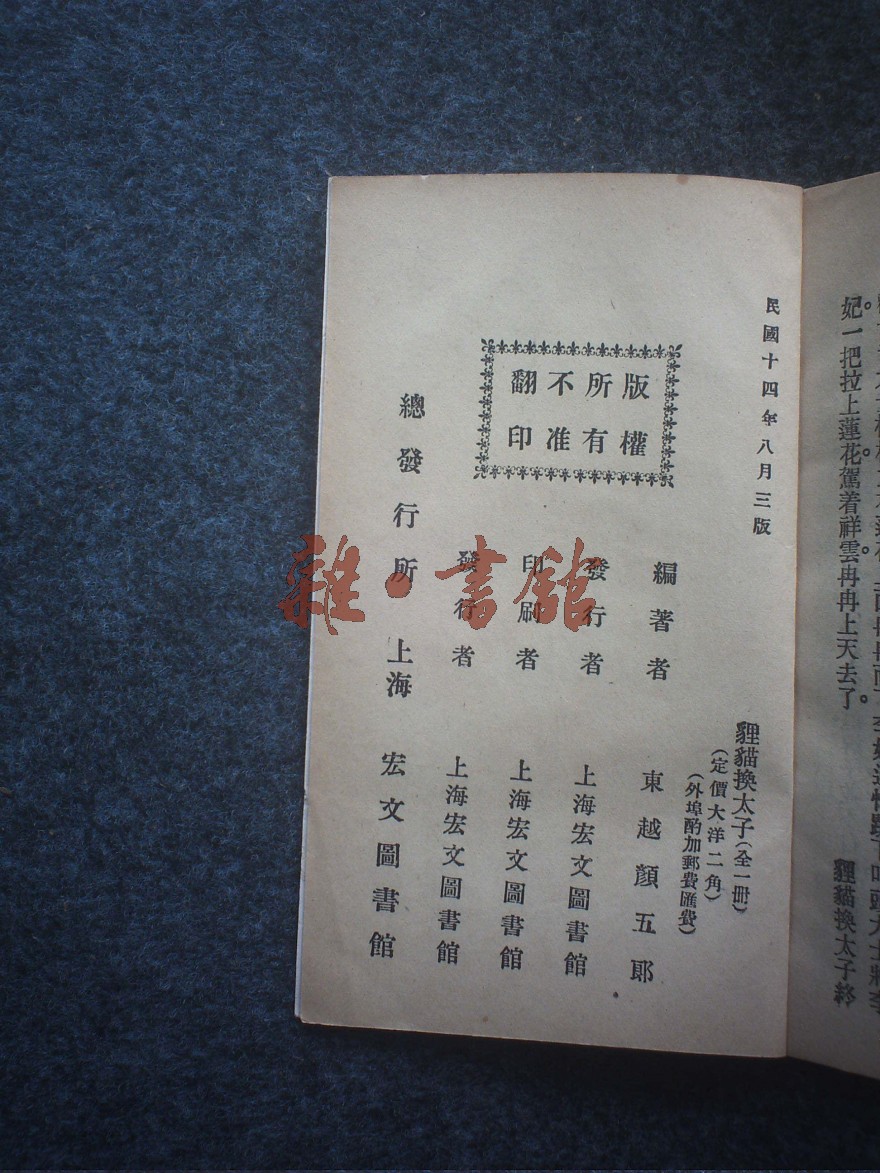 妃一把拉上蓮花。駕着祥雲。冉冉上天去了。
貍貓換太子終
民國十四年八月三版
貍貓換太子(全一册)
(定價大洋二角)
(外埠酌加郵費匯費)
版權
所有
不准
翻印
編著者 東越顏五郎
發行者 上海宏文圖書館
印刷者 上海宏文圖書館
發行者 上海宏文圖書館
總發行所 上海 宏文圖書館
雜·書館